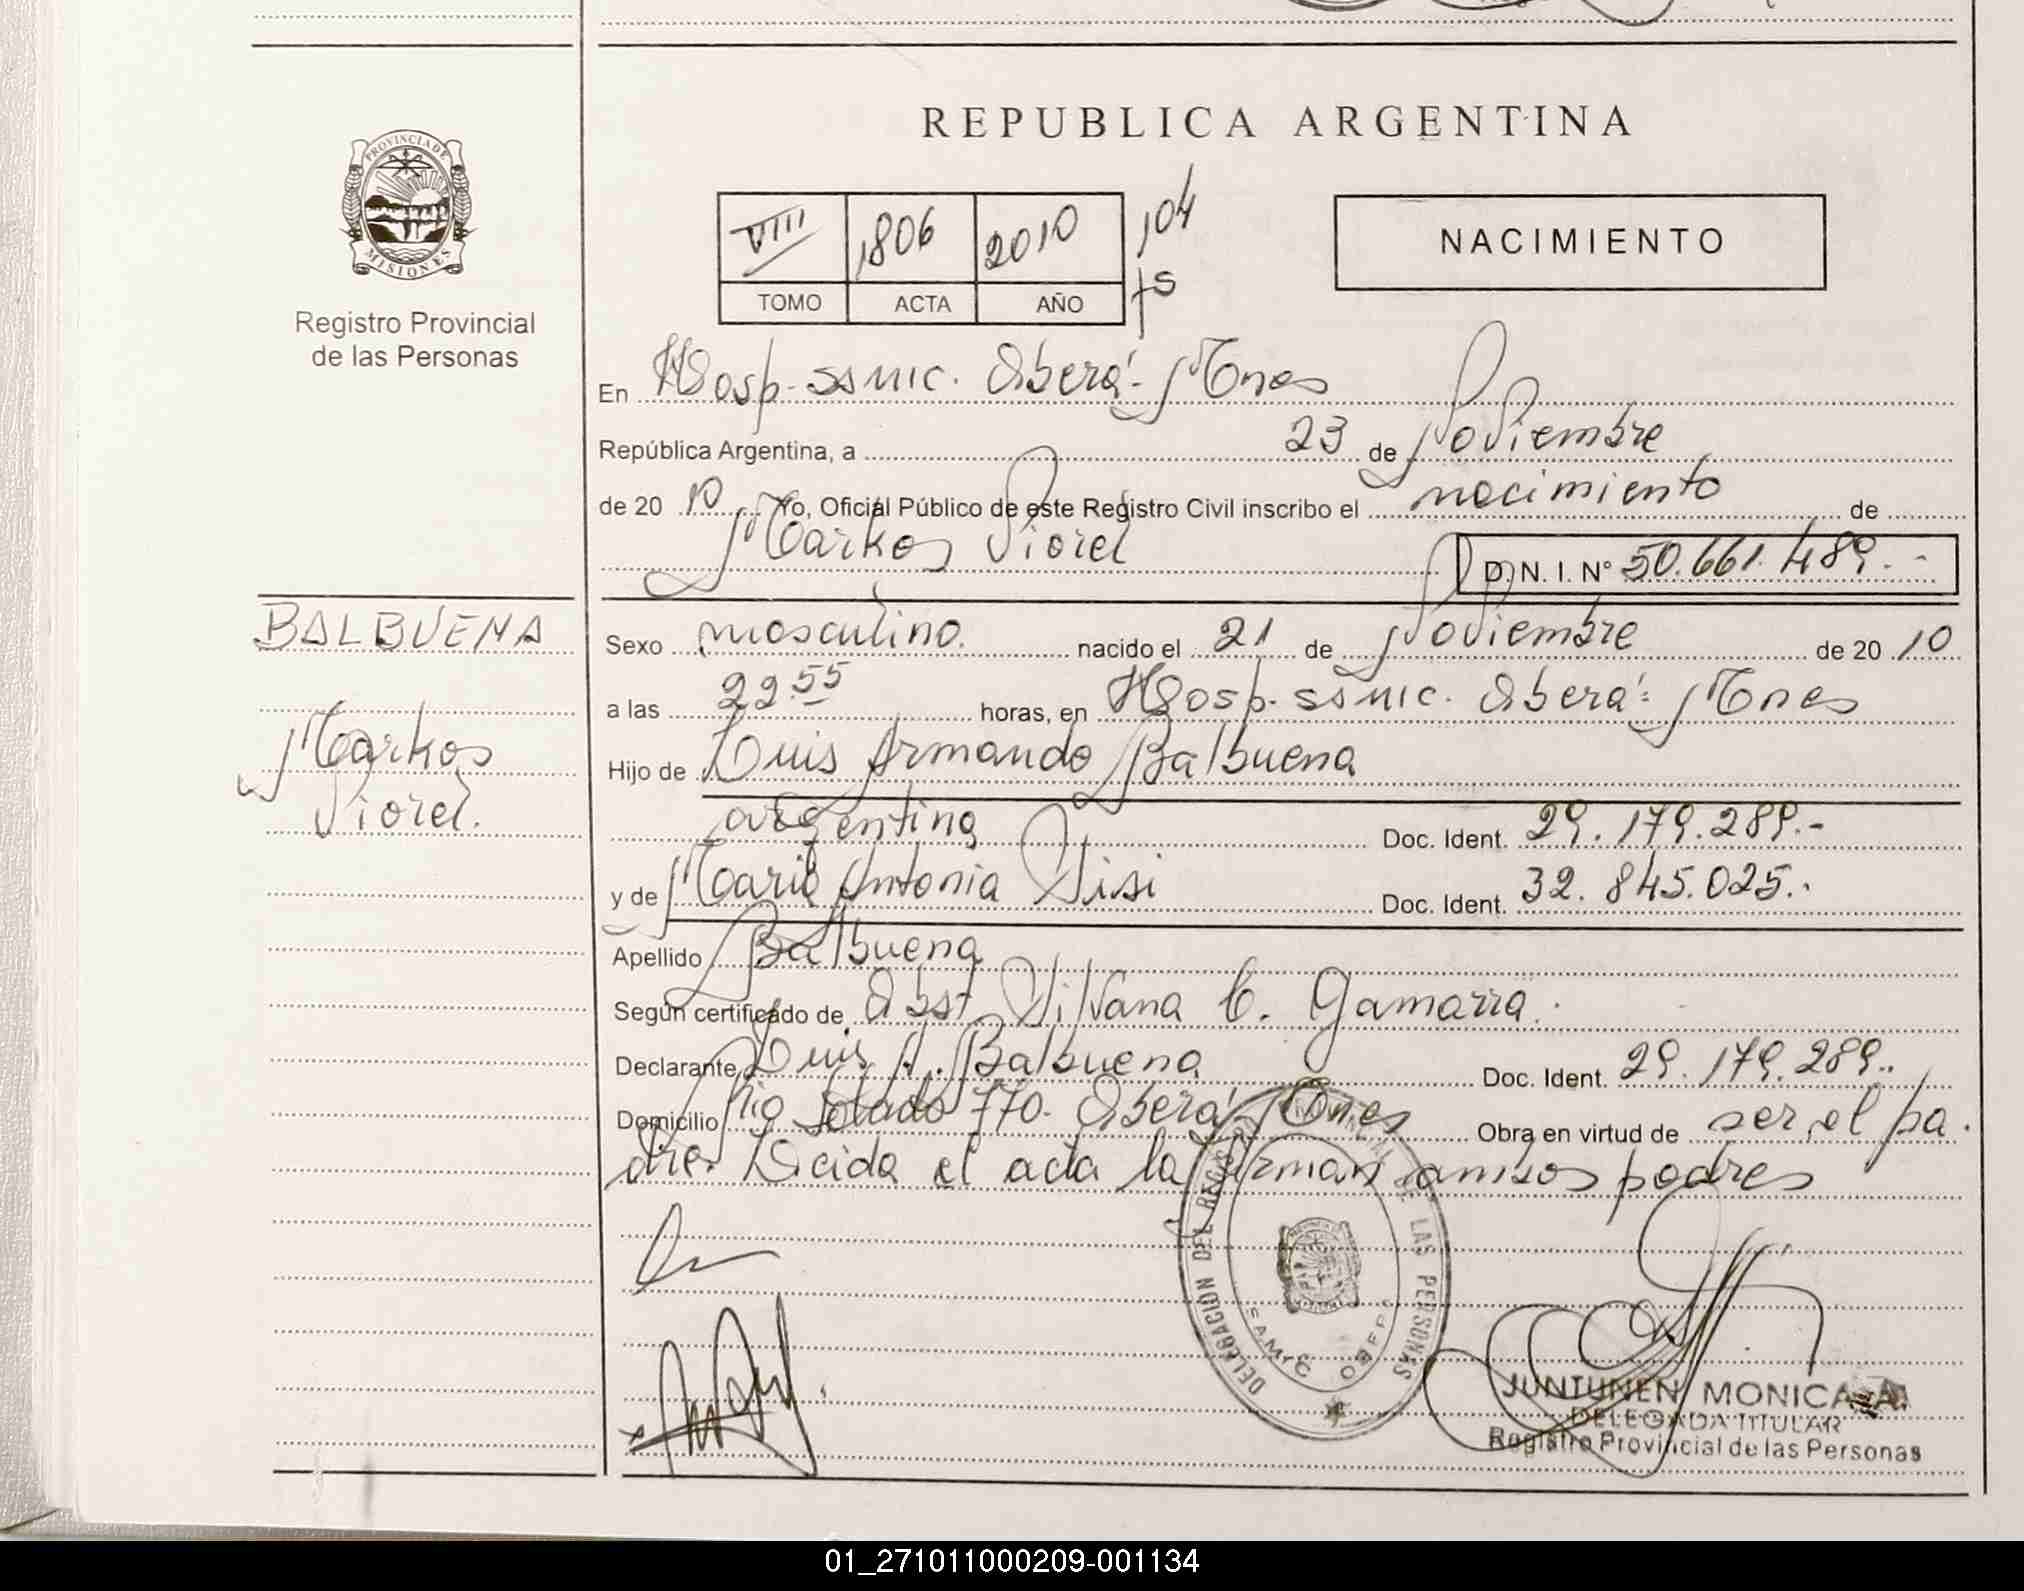 REPUBLICA ARGENTINA
PROVINCIA DE
MISIONES
Registro Provincial
de las Personas
VIII 1806 2010 104
TOMO ACTA AÑO fs
NACIMIENTO
En Hosp. SSMIC. Oberá - Mnes
República Argentina, a 23 de Noviembre
de 20 10 Yo, Oficial Público de este Registro Civil inscribo el nacimiento de
Markos Piorel D. N. I. Nº 50.661.489.-
BALBUENA
Markos
Piorel.
Sexo masculino. nacido el 21 de Noviembre de 20 10
a las 22.55 horas, en Hosp. SSMIC. Oberá - Mnes
Hijo de Luis Armando Balbuena
argentina Doc. Ident. 29.179.289.-
y de Maria Antonia Sisi Doc. Ident. 32.845.025.-
Apellido Balbuena
Según certificado de Obst. Silvana C. Gamarra.
Declarante Luis A. Balbuena Doc. Ident. 29.179.289..
Domicilio Rio 770. Oberá Mnes Obra en virtud de ser el pa.
dre. Leida el acta la firman ambos padres
DELEGACION DEL REGISTRO PROVINCIAL DE LAS PERSONAS
SAMIC OBERA
JUNTUNEN MONICA A.
DELEGADA TITULAR
Registro Provincial de las Personas
01_271011000209-001134